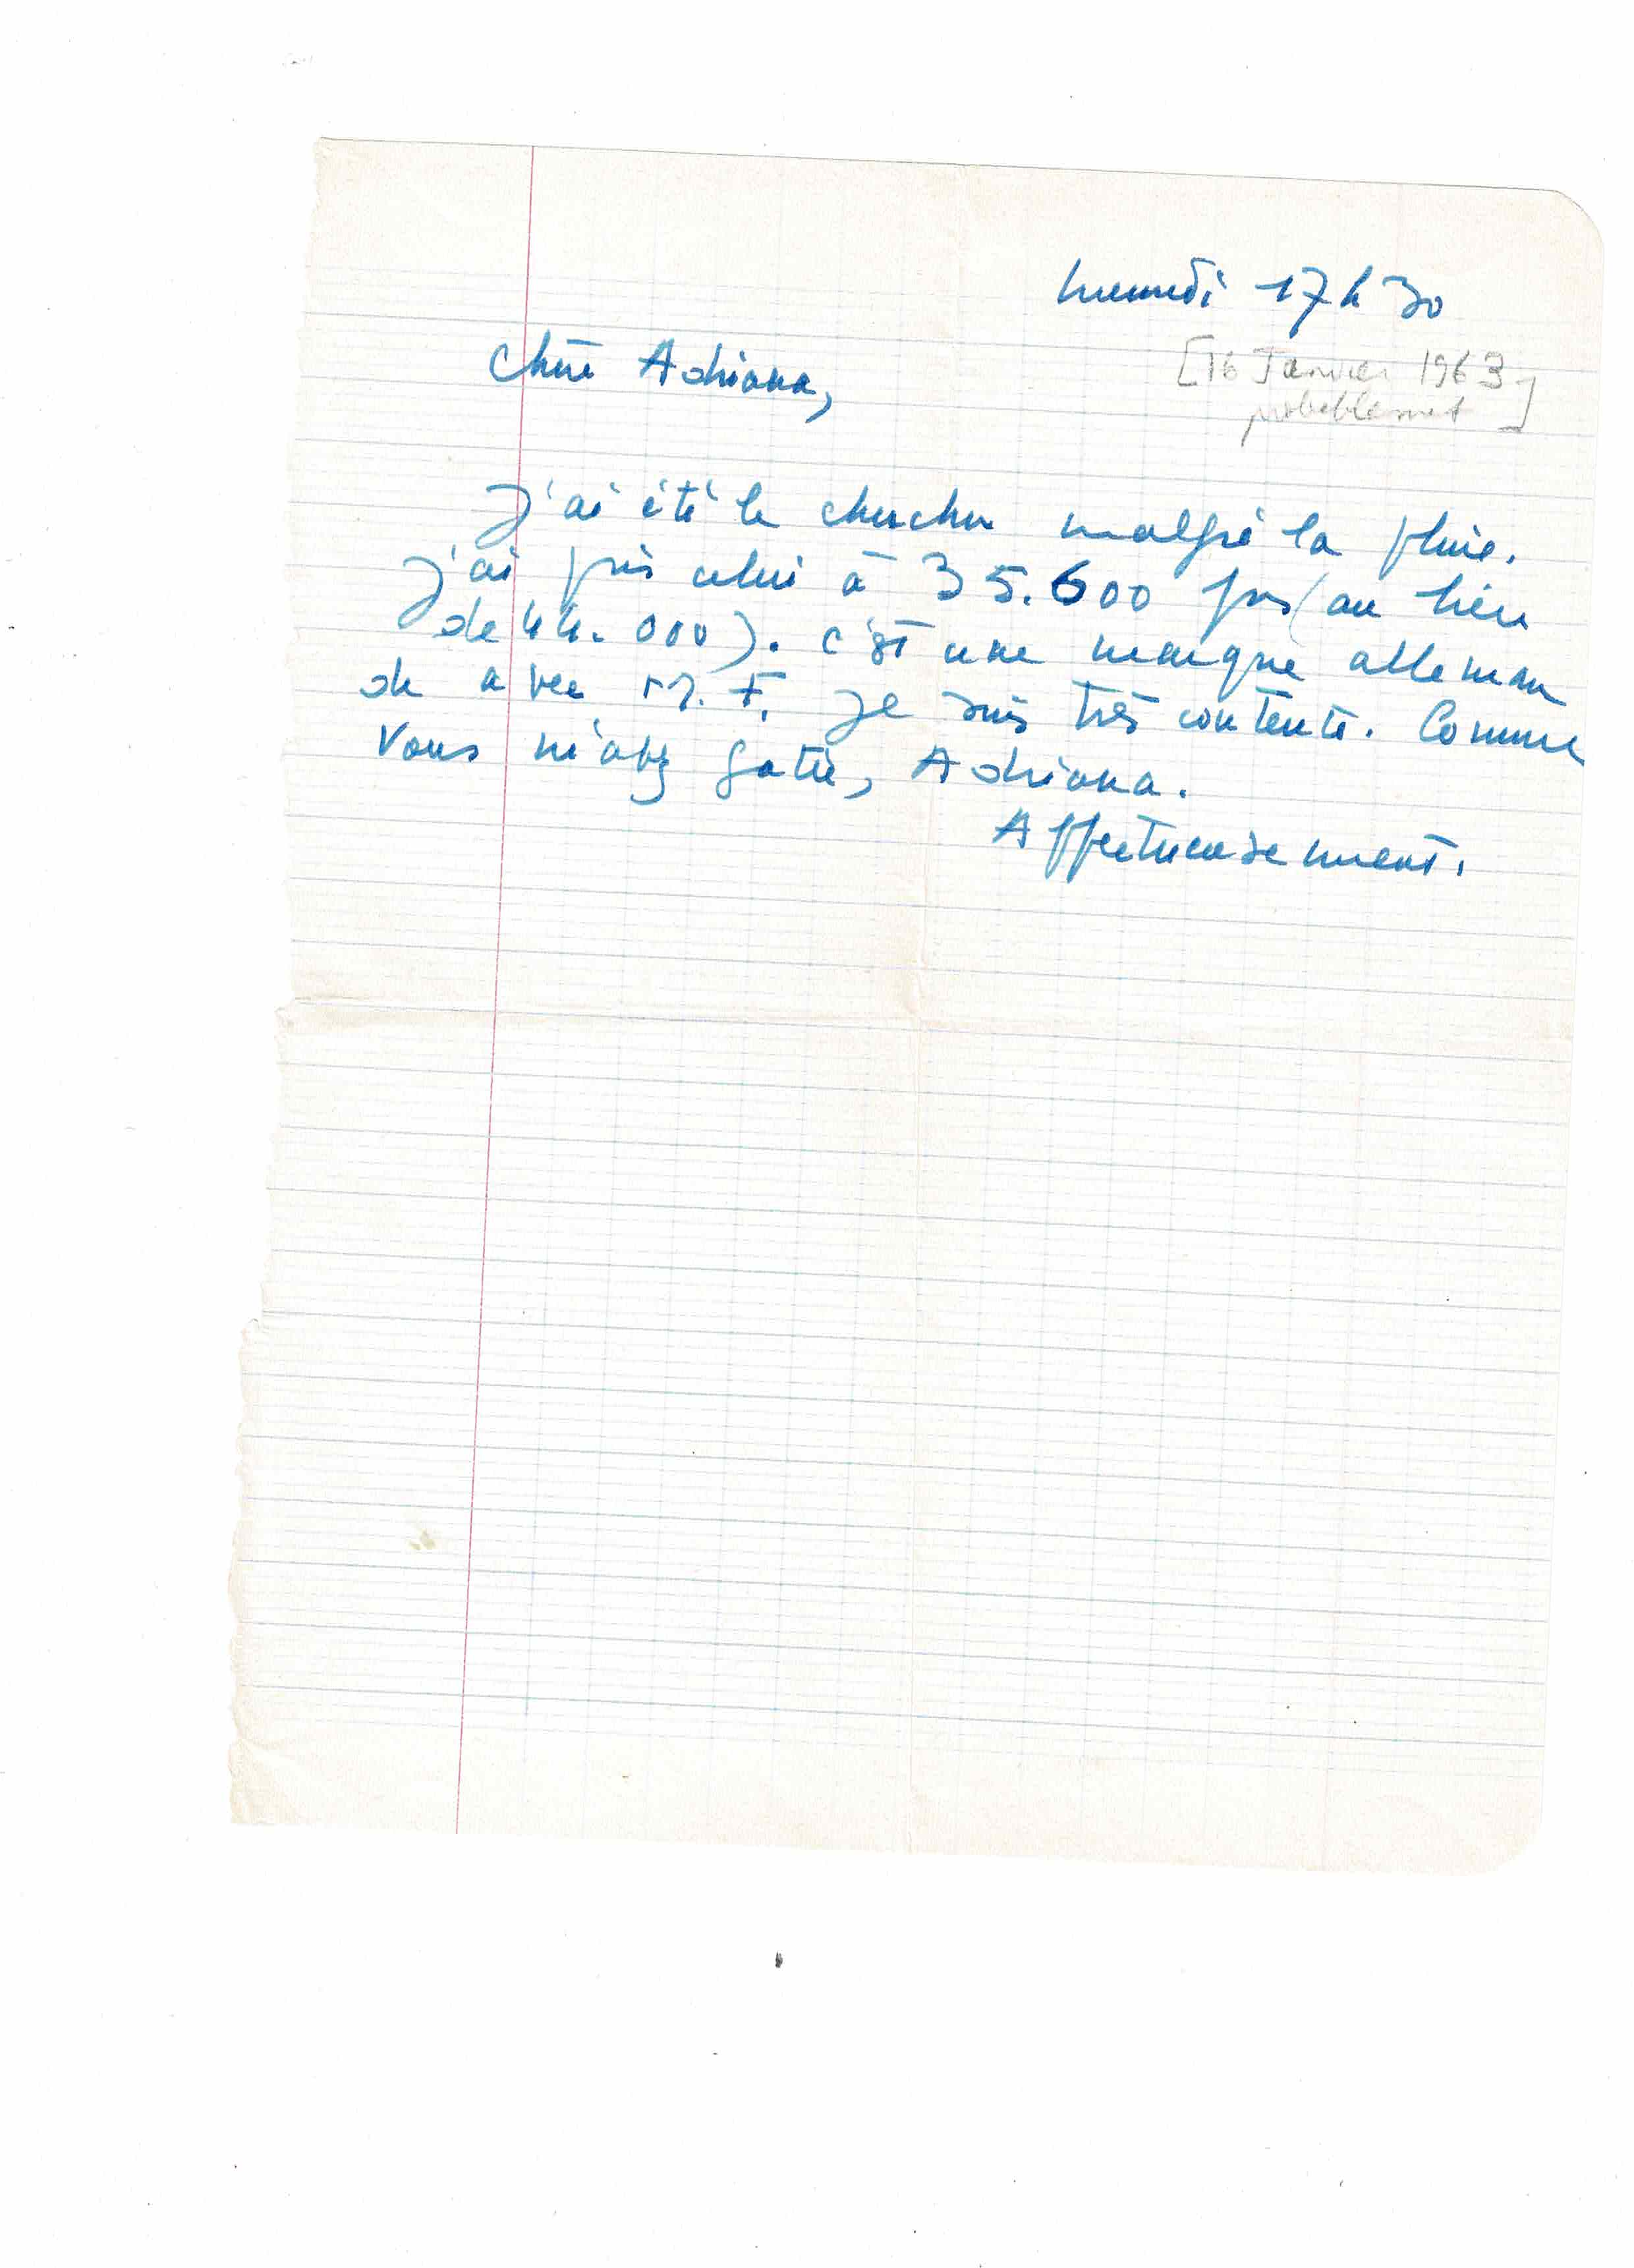 mercredi 17 h 30
[16 Janvier 1963
probablement]
Chère Adriana,
J'ai été le chercher malgré la pluie.
J'ai pris celui à 35.600 frs (au lieu
de 44.000). C'est une marque alleman
de avec M.F. Je suis très contente. Comme
vous m'avez gatée, Adriana.
Affectueusement.